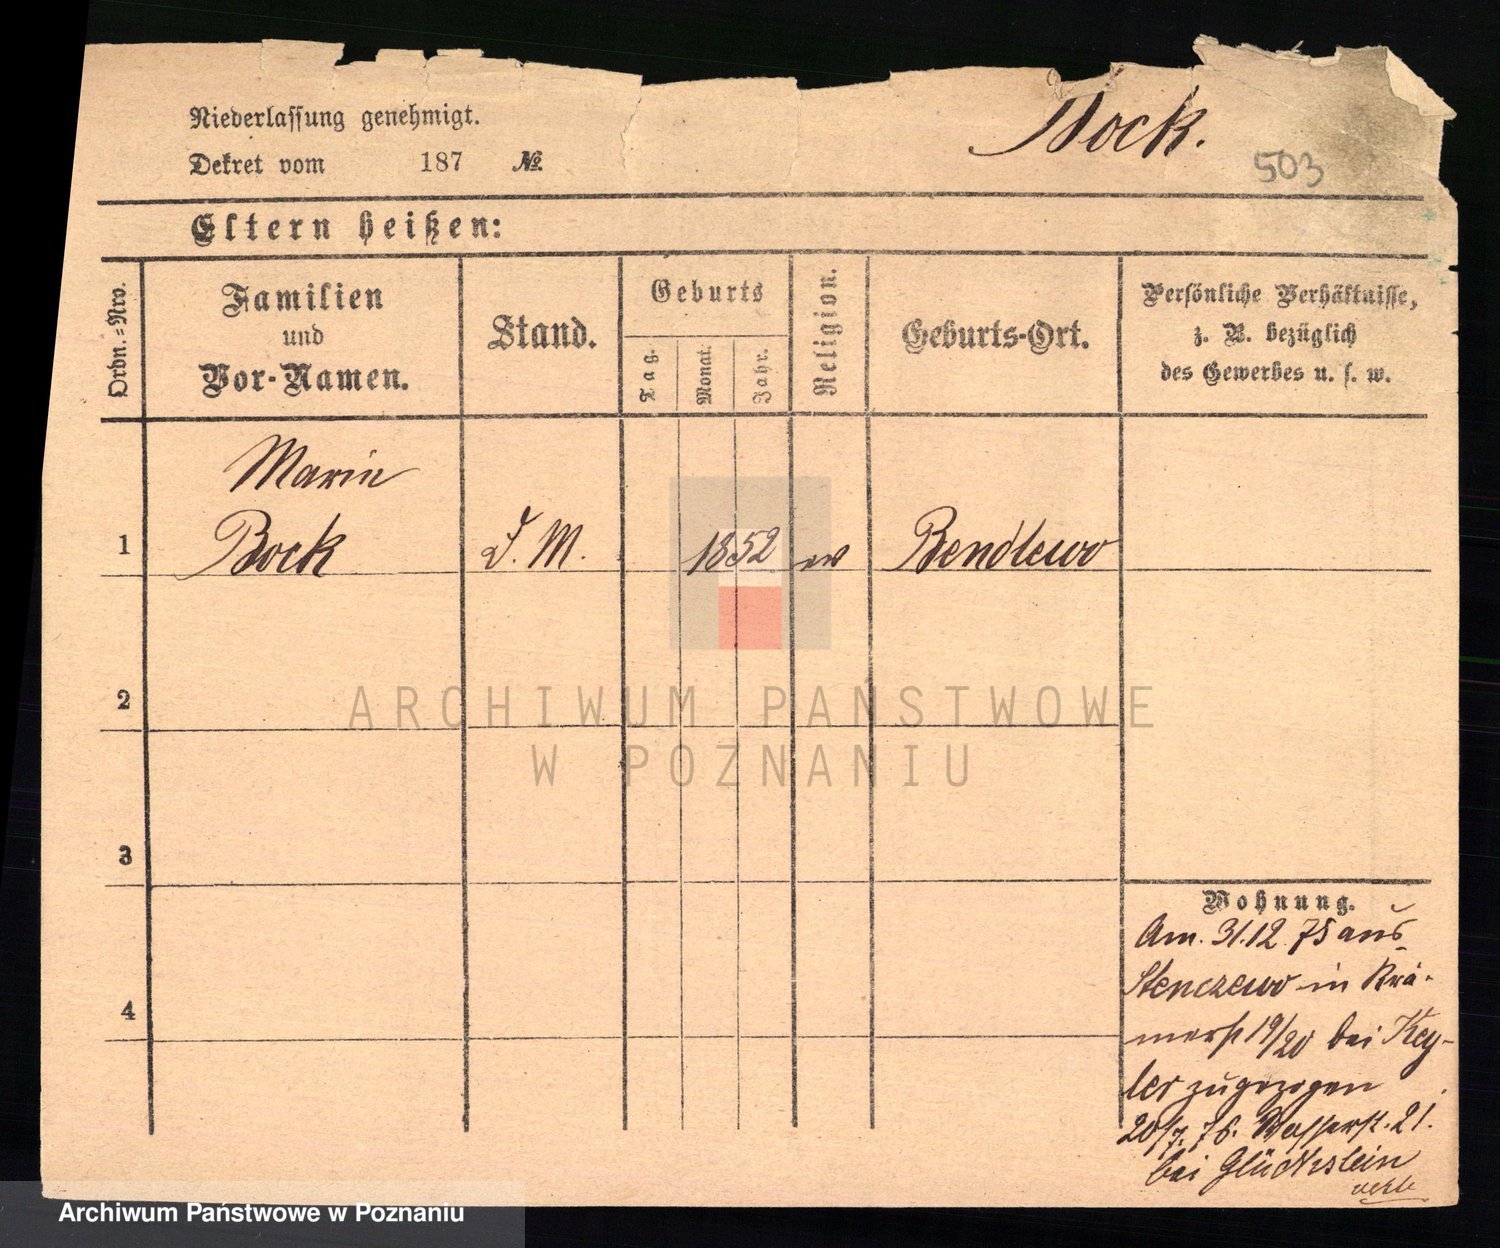 Niederlassung genehmigt.
Dekret vom 187 №.
Bock.
503
Eltern heißen:
Ordn.=Nro.
Familien
und
Vor-Namen.
Stand.
Geburts
Tag.
Monat.
Jahr.
Religion.
Geburts-Ort.
Persönliche Verhältnisse,
z. B. bezüglich
des Gewerbes u. s. w.
Marie
1 Bock D. M. 1852 ev Bendlewo
2
3
4
Wohnung.
Am. 31.12. 75 aus
Stenczewo in Krä-
merst 19/20 bei Key-
ler zugezogen
20/7. 76. Wasserst. 21.
bei Glückstein
ARCHIWUM PAŃSTWOWE
W POZNANIU
Archiwum Państwowe w Poznaniu